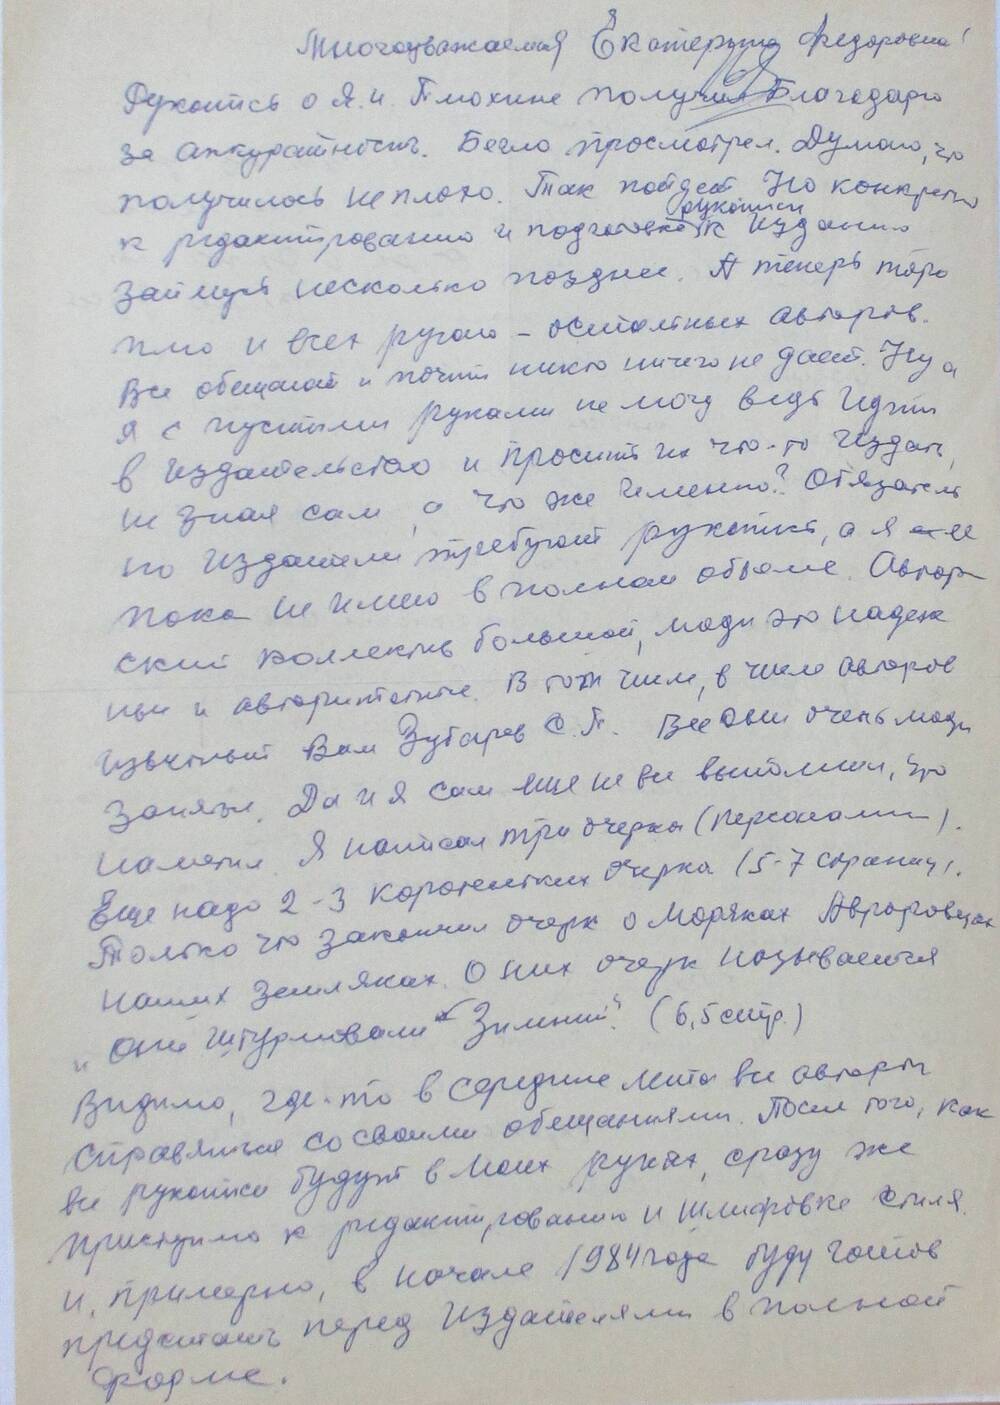 Многоуважаемая Екатерина Федоровна!
Рукопись о Я.И. Плюхине получил Благодарю
за аккуратность. Бегло просмотрел. Думаю, что
получилось неплохо. Так пойдет Но конкретно
к редактированию и подготовке рукописи к изданию
займусь несколько позднее. А теперь торо
плю и всех ругаю – остальных авторов.
Все обещают и почти никто ничего не дает. Ну а
я с пустыми руками не могу ведь идти
в издательство и просить их что-то издать,
не зная сам, а что же именно? Обязатель
но издатели требуют рукопись, а я ее
пока не имею в полном объеме. Автор
ский коллектив большой, люди это надеж
ные и авторитетные. В том числе, в числе авторов
известный Вам Зубарев С.П. Все они очень люди
заняты. Да и я сам еще не все выполнил, что
наметил. Я написал три очерка (персоналии).
Еще надо 2-3 коротеньких очерка (5-7 страниц).
Только что закончил очерк о моряках Авроровцах
наших земляках. О них очерк называется
"Они штурмовали Зимний". (6,5 стр.)
Видимо, где-то в середине лета все авторы
справятся со своими обещаниями. После того, как
все рукописи будут в моих руках, сразу же
приступлю к редактированию и шлифовке стиля.
И, примерно, в начале 1984 года буду готов
предстать перед издателями в полной
форме.